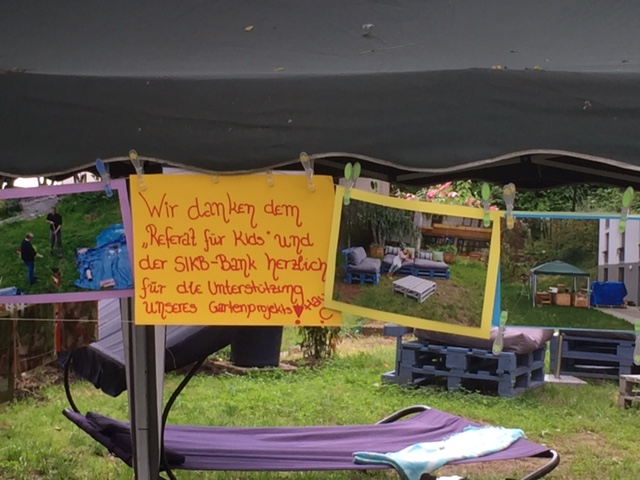 Wir danken dem
„Referat für Kids" und
der SIKB-Bank herzlich
für die Unterstützung
unseres Gartenprojekts